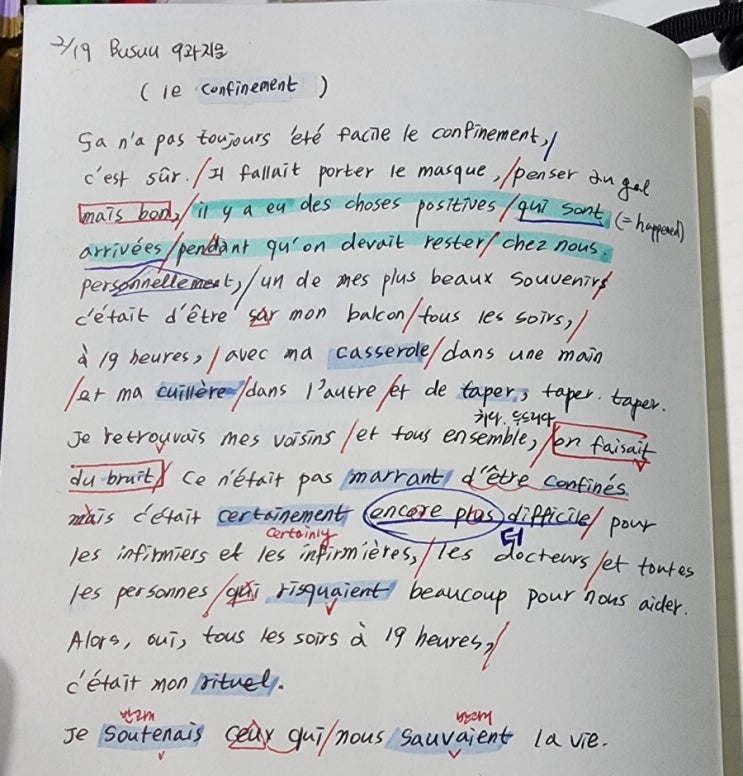 2/19 Busuu 9과지문
( le confinement )
Ça n'a pas toujours été facile le confinement,/
c'est sûr./Il fallait porter le masque,/penser au gel
mais bon,/il y a eu des choses positives/qui sont (= happened)
arrivées/pendant qu'on devait rester/chez nous.
personnellement,/un de mes plus beaux souvenirs/
c'était d'être sur mon balcon/tous les soirs,/
à 19 heures,/avec ma casserole/dans une main
/et ma cuillère/dans l'autre/et de taper, taper. taper.
치다. 두드리다
Je retrouvais mes voisins/et tous ensemble,/on faisait
du bruit/ Ce n'était pas marrant d'être confinés
mais c'était certainement encore plus difficile/pour
certainly 더
les infirmiers et les infirmières,/les docteurs/et toutes
les personnes/qui risquaient beaucoup pour nous aider.
Alors, oui, tous les soirs à 19 heures,/
c'était mon rituel.
반과거 반과거
Je soutenais ceux qui/nous sauvaient la vie.